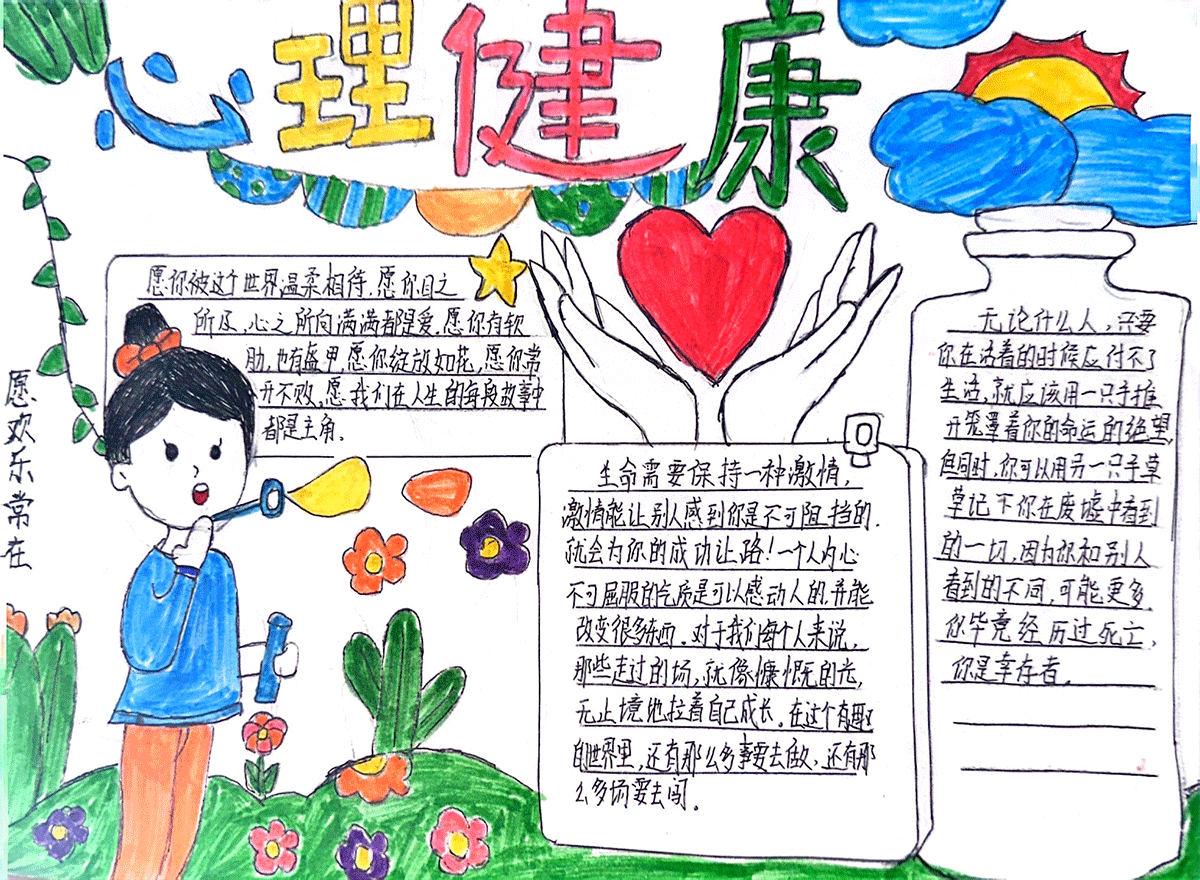 心理健康
愿你被这个世界温柔相待,愿你目之
所及,心之所向满满都是爱,愿你有软
肋,也有盔甲,愿你绽放如花,愿你常
开不败,愿我们在人生的每段故事中
都是主角。
愿欢乐常在
生命需要保持一种激情,
激情能让别人感到你是不可阻挡的.
就会为你的成功让路!一个人内心
不可屈服的气质是可以感动人的.并能
改变很多东西.对于我们每个人来说,
那些走过的场,就像慷慨无的光,
无止境地拉着自己成长,在这个有趣
的世界里,还有那么多事要去做,还有那
么多场要去闯。
无论什么人,只要
你在活着的时候应付不了
生活,就应该用一只手推
开笼罩着你的命运的绝望,
但同时,你可以用另一只手草
草记下你在废墟中看到
的一切,因为你和别人
看到的不同,可能更多.
你毕竟经历过死亡,
你是幸存者。